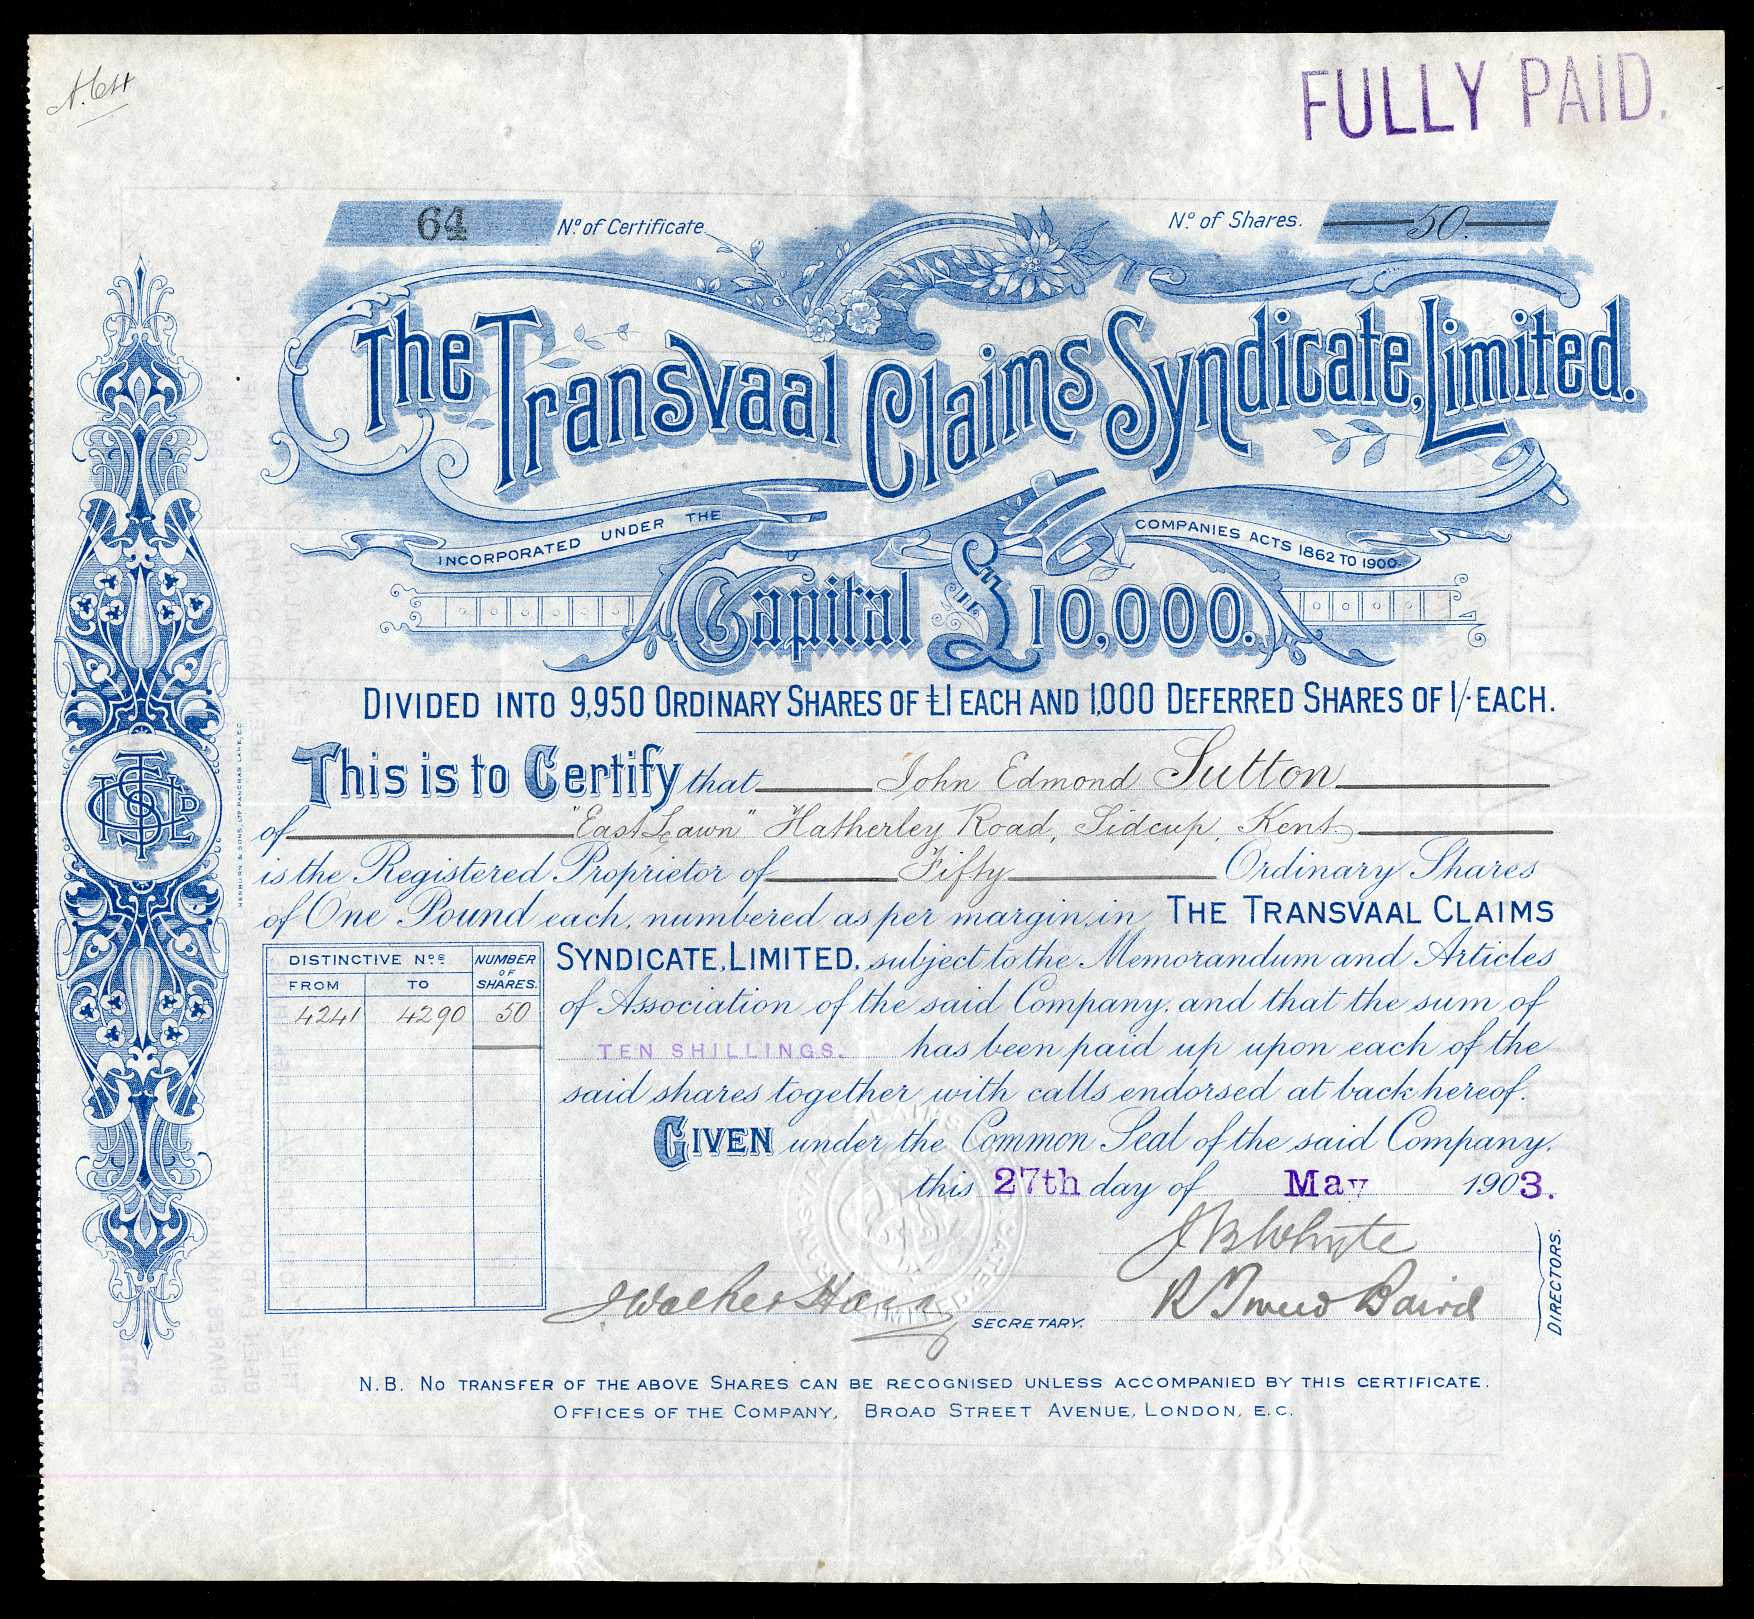 FULLY PAID.
64 No. of Certificate
No. of Shares. 50.
The Transvaal Claims Syndicate, Limited.
INCORPORATED UNDER THE COMPANIES ACTS 1862 TO 1900.
Capital £10,000.
DIVIDED INTO 9,950 ORDINARY SHARES OF £1 EACH AND 1,000 DEFERRED SHARES OF 1/- EACH.
This is to Certify that John Edmond Sutton
of "East Lawn" Hatherley Road, Sidcup, Kent
is the Registered Proprietor of Fifty Ordinary Shares
of One Pound each, numbered as per margin, in THE TRANSVAAL CLAIMS
SYNDICATE, LIMITED, subject to the Memorandum and Articles
of Association of the said Company, and that the sum of
TEN SHILLINGS. has been paid up upon each of the
said shares together with calls endorsed at back hereof.
GIVEN under the Common Seal of the said Company,
this 27th day of May 1903.
DISTINCTIVE Nos. NUMBER OF SHARES.
FROM TO
4241 4290 50
J B Whyte
R Tweed Baird
DIRECTORS.
J Walker
SECRETARY.
N.B. No TRANSFER OF THE ABOVE SHARES CAN BE RECOGNISED UNLESS ACCOMPANIED BY THIS CERTIFICATE.
OFFICES OF THE COMPANY, BROAD STREET AVENUE, LONDON, E.C.
& SONS, LTD PANCRAS LANE, E.C.